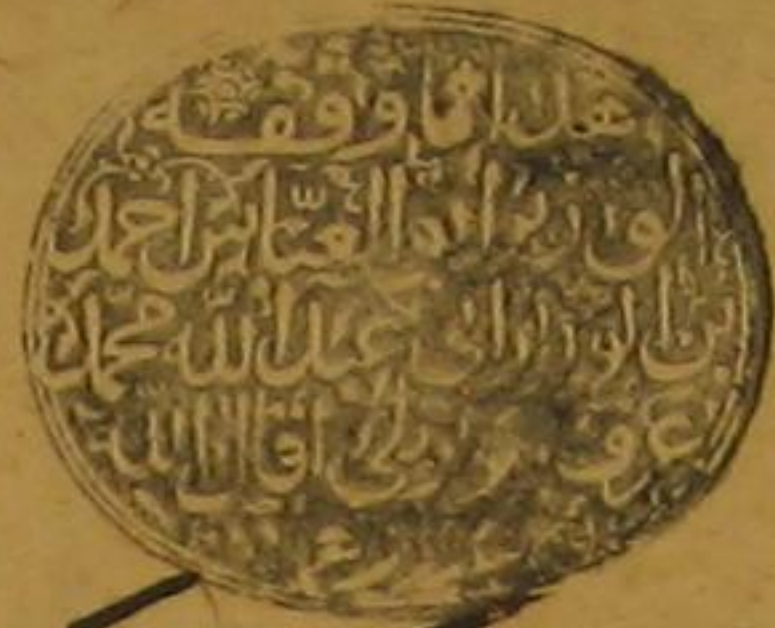 هذا مما وقفه
الوزير أبو العباس أحمد
بن الوزير أبي عبد الله محمد
عرف بكوبريلي أقال الله